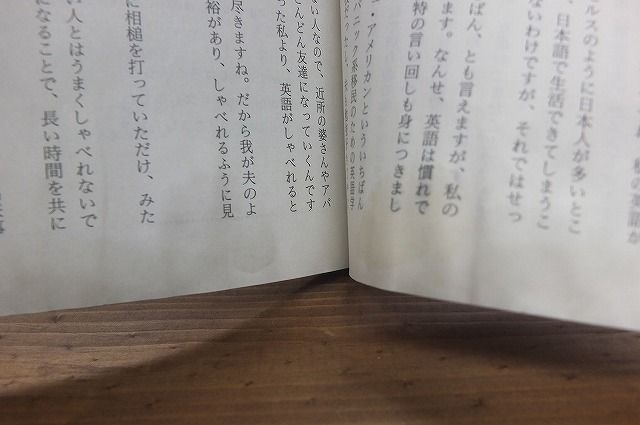 英語が
ルスのように日本人が多いとこ
、日本語で生活できてしまうこ
ないわけですが、それではせっ
ばん、とも言えますが、私の
ます。なんせ、英語は慣れで
特の言い回しも身につきまし
・アメリカンといういちばん
パニック系移民のための英語学
い人なので、近所の婆さんやアパ
どんどん友達になっていくんです
った私より、英語がしゃべれると
尽きますね。だから我が夫のよ
裕があり、しゃべれるふうに見
に相槌を打っていただけ、みた
い人とはうまくしゃべれないで
になることで、長い時間を共に